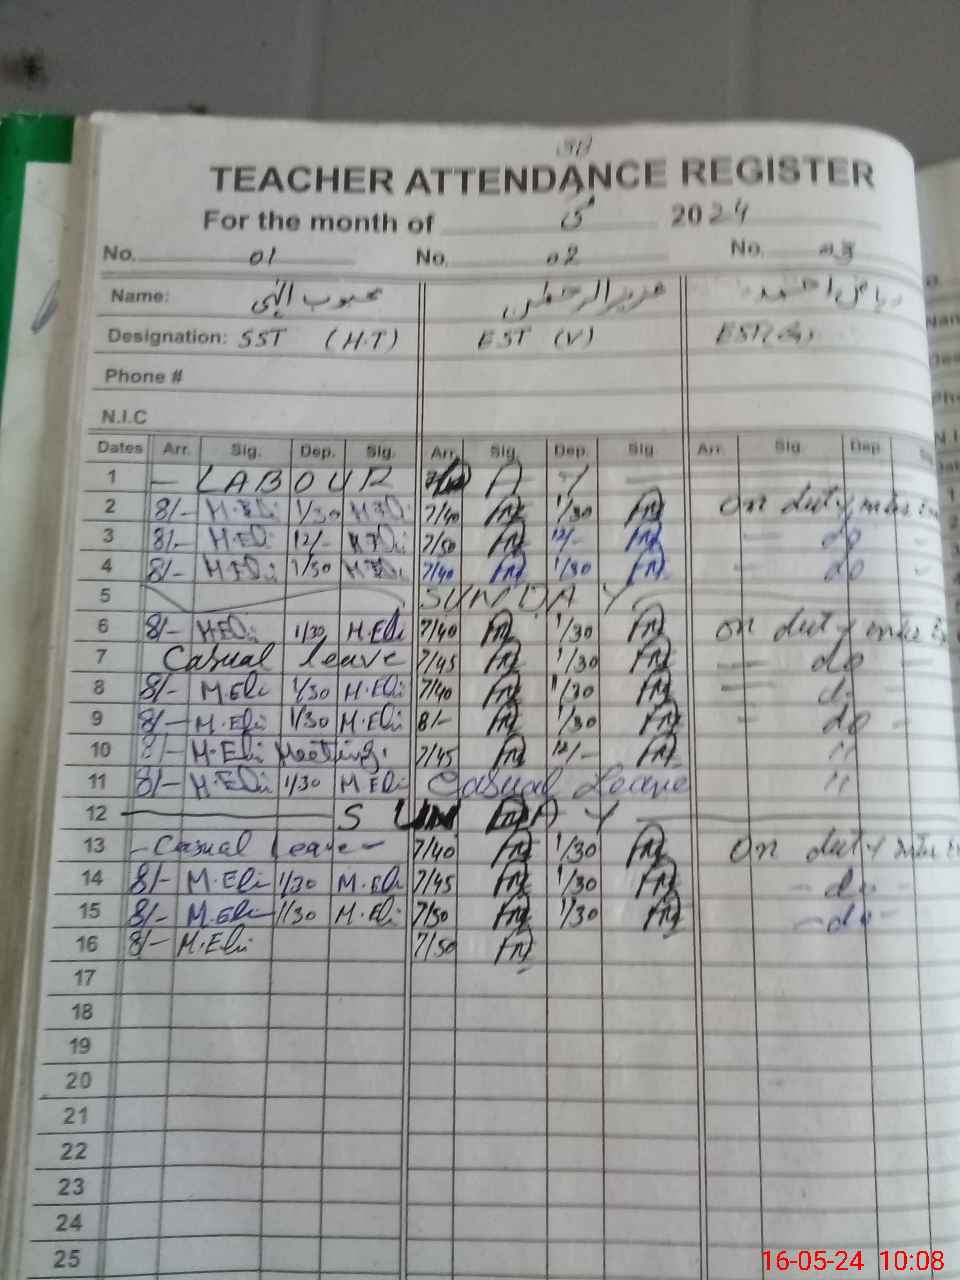 TEACHER ATTENDANCE REGISTER
For the month of مئی 2024
No. 01 No. 02 No. 03
Name: محبوب الٰہی عزیز الرحمٰن ریاض احمد
Designation: SST (H.T) EST (V) EST
Phone #
N.I.C
Dates Arr. Sig. Dep. Sig. Arr. Sig. Dep. Sig. Arr. Sig. Dep. Sig.
1 — LABOUR D A Y —
2 8/- M.Eli 1/30 M.Eli 7/40 1/30 On duty
3 8/- M.Eli 12/- M.Eli 7/50 12/- — do —
4 8/- M.Eli 1/30 M.Eli 7/40 1/30 — do —
5 SUNDAY
6 8/- M.Eli 1/30 M.Eli 7/40 1/30 On duty
7 Casual leave 7/45 1/30 — do —
8 8/- M.Eli 1/30 M.Eli 7/40 1/30 — do
9 8/- M.Eli 1/30 M.Eli 8/- 1/30 — do -
10 8/- M.Eli Meeting. 7/45 12/- "
11 8/- M.Eli 1/30 M.Eli Casual Leave "
12 SUNDAY
13 - Casual leave - 7/40 1/30 On duty
14 8/- M.Eli 1/30 M.Eli 7/45 1/30 - do -
15 8/- M.Eli 1/30 M.Eli 7/50 1/30 - do -
16 8/- M.Eli 7/50
17
18
19
20
21
22
23
24
25
16-05-24 10:08